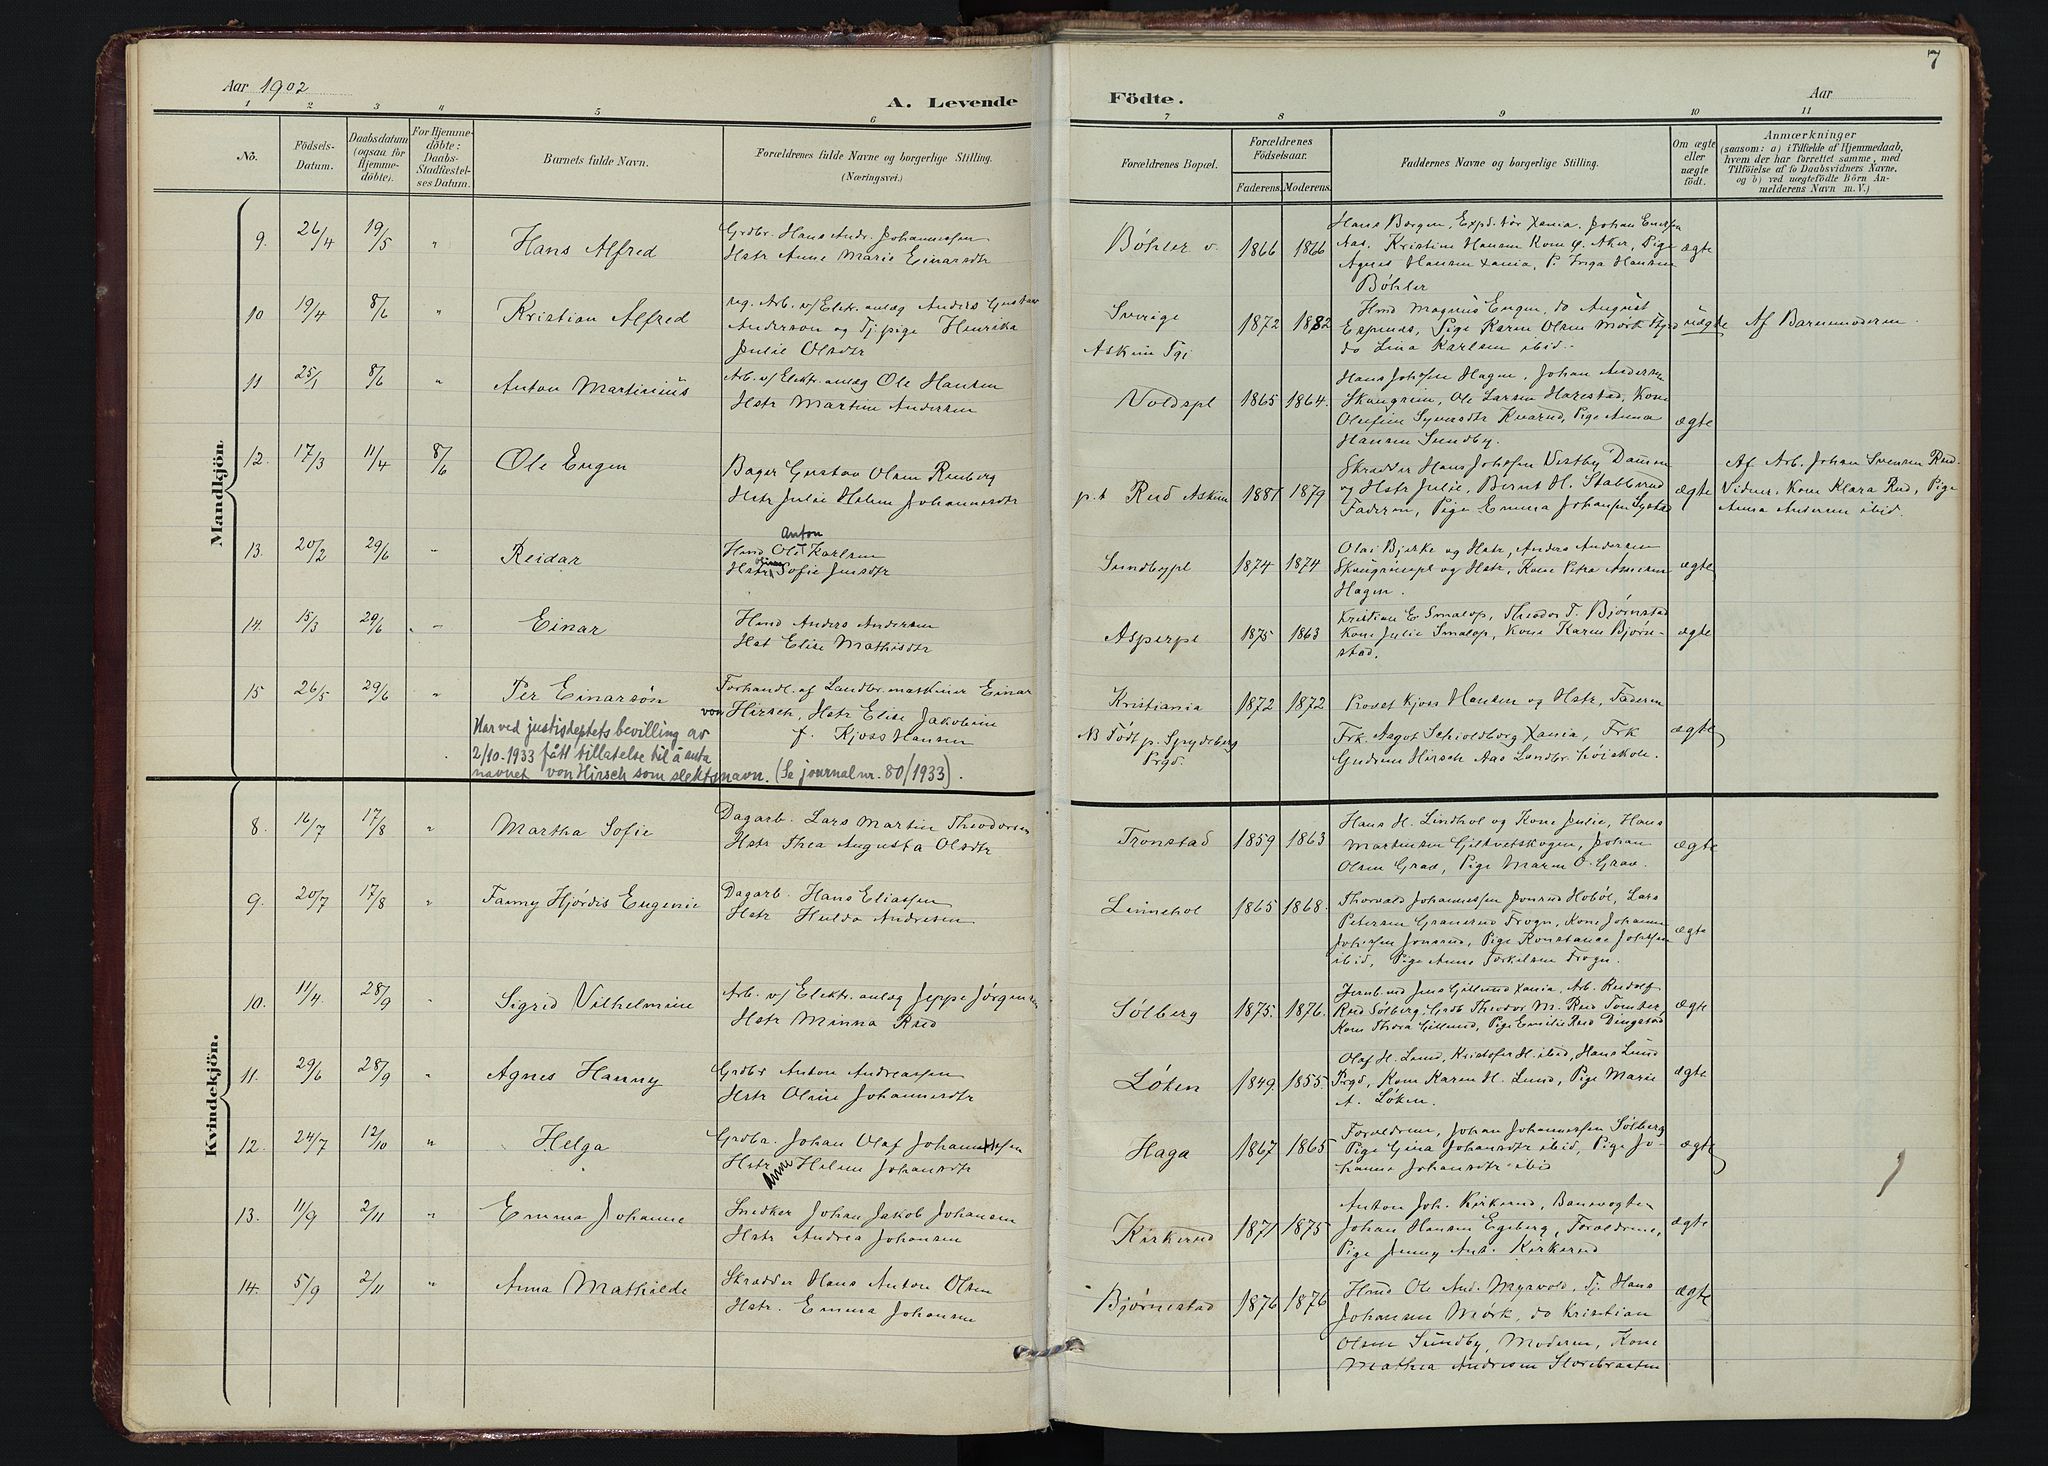 Aar 1902
A. Levende
1 2 3 4 5 6
No.
Födsels-
Datum.
Daabsdatum
(ogsaa for
Hjemme-
døbte).
For Hjemme-
döbte:
Daabs-
Stadfæstel-
ses Datum.
Barnets fulde Navn.
Forældrenes fulde Navne og borgerlige Stilling.
(Næringsvei.)
Mandkjön
9. 26/4 19/5 " Hans Alfred
Grdbr. Hans Andr. Johannessen
Hstr Anne Marie Einarsdtr
10 19/4 8/6 " Kristian Alfred
ug. Arb. v/ Elektr. anlæg Anders Gustav
Anderson og Tj. pige Henrika
Julie Olsdtr
11 25/1 8/6 " Anton Martinius
Arb. v/ Elektr. anlæg Ole Hansen
Hstr Martine Andersen
12. 17/3 11/4 8/6 Ole Eugen
Bager Gustav Olsen Renberg
Hstr Julie Helene Johannesdtr
13. 20/2 29/6 " Reidar
Anton
Hmd Ole Karlsen
Hstr Sofie Jensdtr
14. 15/3 29/6 " Einar
Hmd Anders Andersen
Hst Elise Mathisdtr
15 26/5 29/6 " Per Einarsön
Forhandl. af Landbr. maskiner Einar
von Hirsch, Hstr Elise Jakobine
f. Kjoss Hansen
Har ved justisdeptets bevilling av
2/10-1933 fått tillatelse til å anta
navnet von Hirsch som slektsnavn. (Se journal nr. 80/1933).
Kvindekjön.
8. 16/7 17/8 " Martha Sofie
Dagarb. Lars Martin Theodorsen
Hstr Thea Augusta Olsdtr
9. 20/7 17/8 " Fanny Hjördis Eugenie
Dagarb. Hans Eliassen
Hstr Hulda Andresen
10. 11/4. 28/9 " Sigrid Vilhelmine
Arb. v/ Elektr. anlæg Jeppe Jørgensen
Hstr Minna Rud
11. 29/6 28/9 " Agnes Hanny
Grdbr Anton Andreassen
Hstr Oline Johannesdtr
12. 24/7 12/10 " Helga
Grdbr. Johan Olaf Johannessen
Hstr Anne Helene Johansdtr
13. 11/9 2/11 " Emma Johanne
Snedker Johan Jakob Johansen
Hstr Andrea Johansen
14. 5/9 2/11 " Anna Mathilde
Skrædder Hans Anton Olsen
Hstr. Emma Johansen
7
Födte.
Aar
7 8 9 10 11
Forældrenes Bopæl.
Forældrenes
Födselsaar.
Faderens. Moderens.
Faddernes Navne og borgerlige Stilling.
Om ægte
eller
uægte
født.
Anmærkninger
(saasom: a) i Tilfælde af Hjemmedaab,
hvem der har forrettet samme, med
Tilföielse af to Daabsvidners Navne,
og b) ved uægtefödte Börn An-
melderens Navn m. V.)
Böhler v. 1866 1866
Hans Borgen, Expd.tör Xania. Johan Einarsen
Aas, Kristine Hansen Kone Ø. Aker, Pige
Agnes Hansen Xania, P. Inga Hansen
Böhler
ægte
Sverige
Askim Pgj
1872 1882
Hmd Magnus Engen, do August
Espenes, Pige Karen Olsen Mørk
do Lina Karlsen ibid.
uægte
Af Barnemoderen.
Voldspl 1865 1864.
Hans Johsen Hagen, Johan Andersen
Skaugrim, Ole Larsen Harestad, Kone
Olufine Syversdtr Kvarud, Pige Anna
Hansen Sundby.
ægte
p.t Rud Askim 1881 1879
Skrædder Hans Johsen Vestby Dammen
og Hstr Julie, Bernt H. Stabberud
Faderen, Pige Emma Johansen
ægte
Af Arb. Johan Svensen Rud.
Vidner. Kone Klara Rud, Pige
Anna Andersen ibid.
Sundbypl 1874 1874
Olai Bjerke og Hstr, Anders Andersen
og Hstr, Kone Petra Andersen
Hagen.
ægte
Asperpl 1875 1863
Kristian E Smalop, Theodor T. Bjørnstad
Kone Julie Smalop, Kone Karen Bjørn-
stad.
ægte
Kristiania
NB Födt p. Spydeberg
Prgd.
1872 1872
Provst Kjoss Hansen og Hstr, Faderen
Frk. Aagot Schioldborg Xania, Frk
Gudrun Hirsch Aas Landbr. höiskole.
ægte
Tronstad 1859 1863
Hans H. Lindhol og Kone Julie, Hans
Martinsen Gilhvetskogen, Johan
Olsen Graa, Pige Maren O. Graa.
ægte
Linnehol 1865 1868.
Thorvald Johannessen Jonsrud Hoböl, Lars
Petersen Granerud Frogn, Kone Johanne
Johnsen Jonsrud, Pige Konstance Johnsen
ibid, Pige Anne Torkelsen Frogn.
ægte
Sölberg 1875. 1876.
Jernb.md Jens Gillund Xania, Arb. Rudolf
Rud Sölberg, Grdb Theodor M. Rud Tomter,
Kone Thora Gillund, Pige Emilie Rud Dingstad
ægte
Löken 1849 1855
Olaf H. Lund, Kristofer H. ibid, Hans Lund
Prgd, Kone Karen H. Lund, Pige Marie
A. Löken.
ægte
Haga 1867 1865
Forældrene, Johan Johannessen Sölberg
Pige Gina Johansdtr ibid, Pige Jo-
hanne Johansdtr ibid
ægte
Kirkerud 1871 1875
Anton Joh. Kirkerud, Banevogter
Johan Hansen Egeberg, Forældrene,
Pige Jenny Ant. Kirkerud
ægte
Bjørnestad 1876 1876
Hmd Ole And. Myrvold, Tj. Hans
Johansen Mörk, do Kristian
Olsen Sundby, Moderen, Kone
Mathea Andresen Storebraaten
ægte